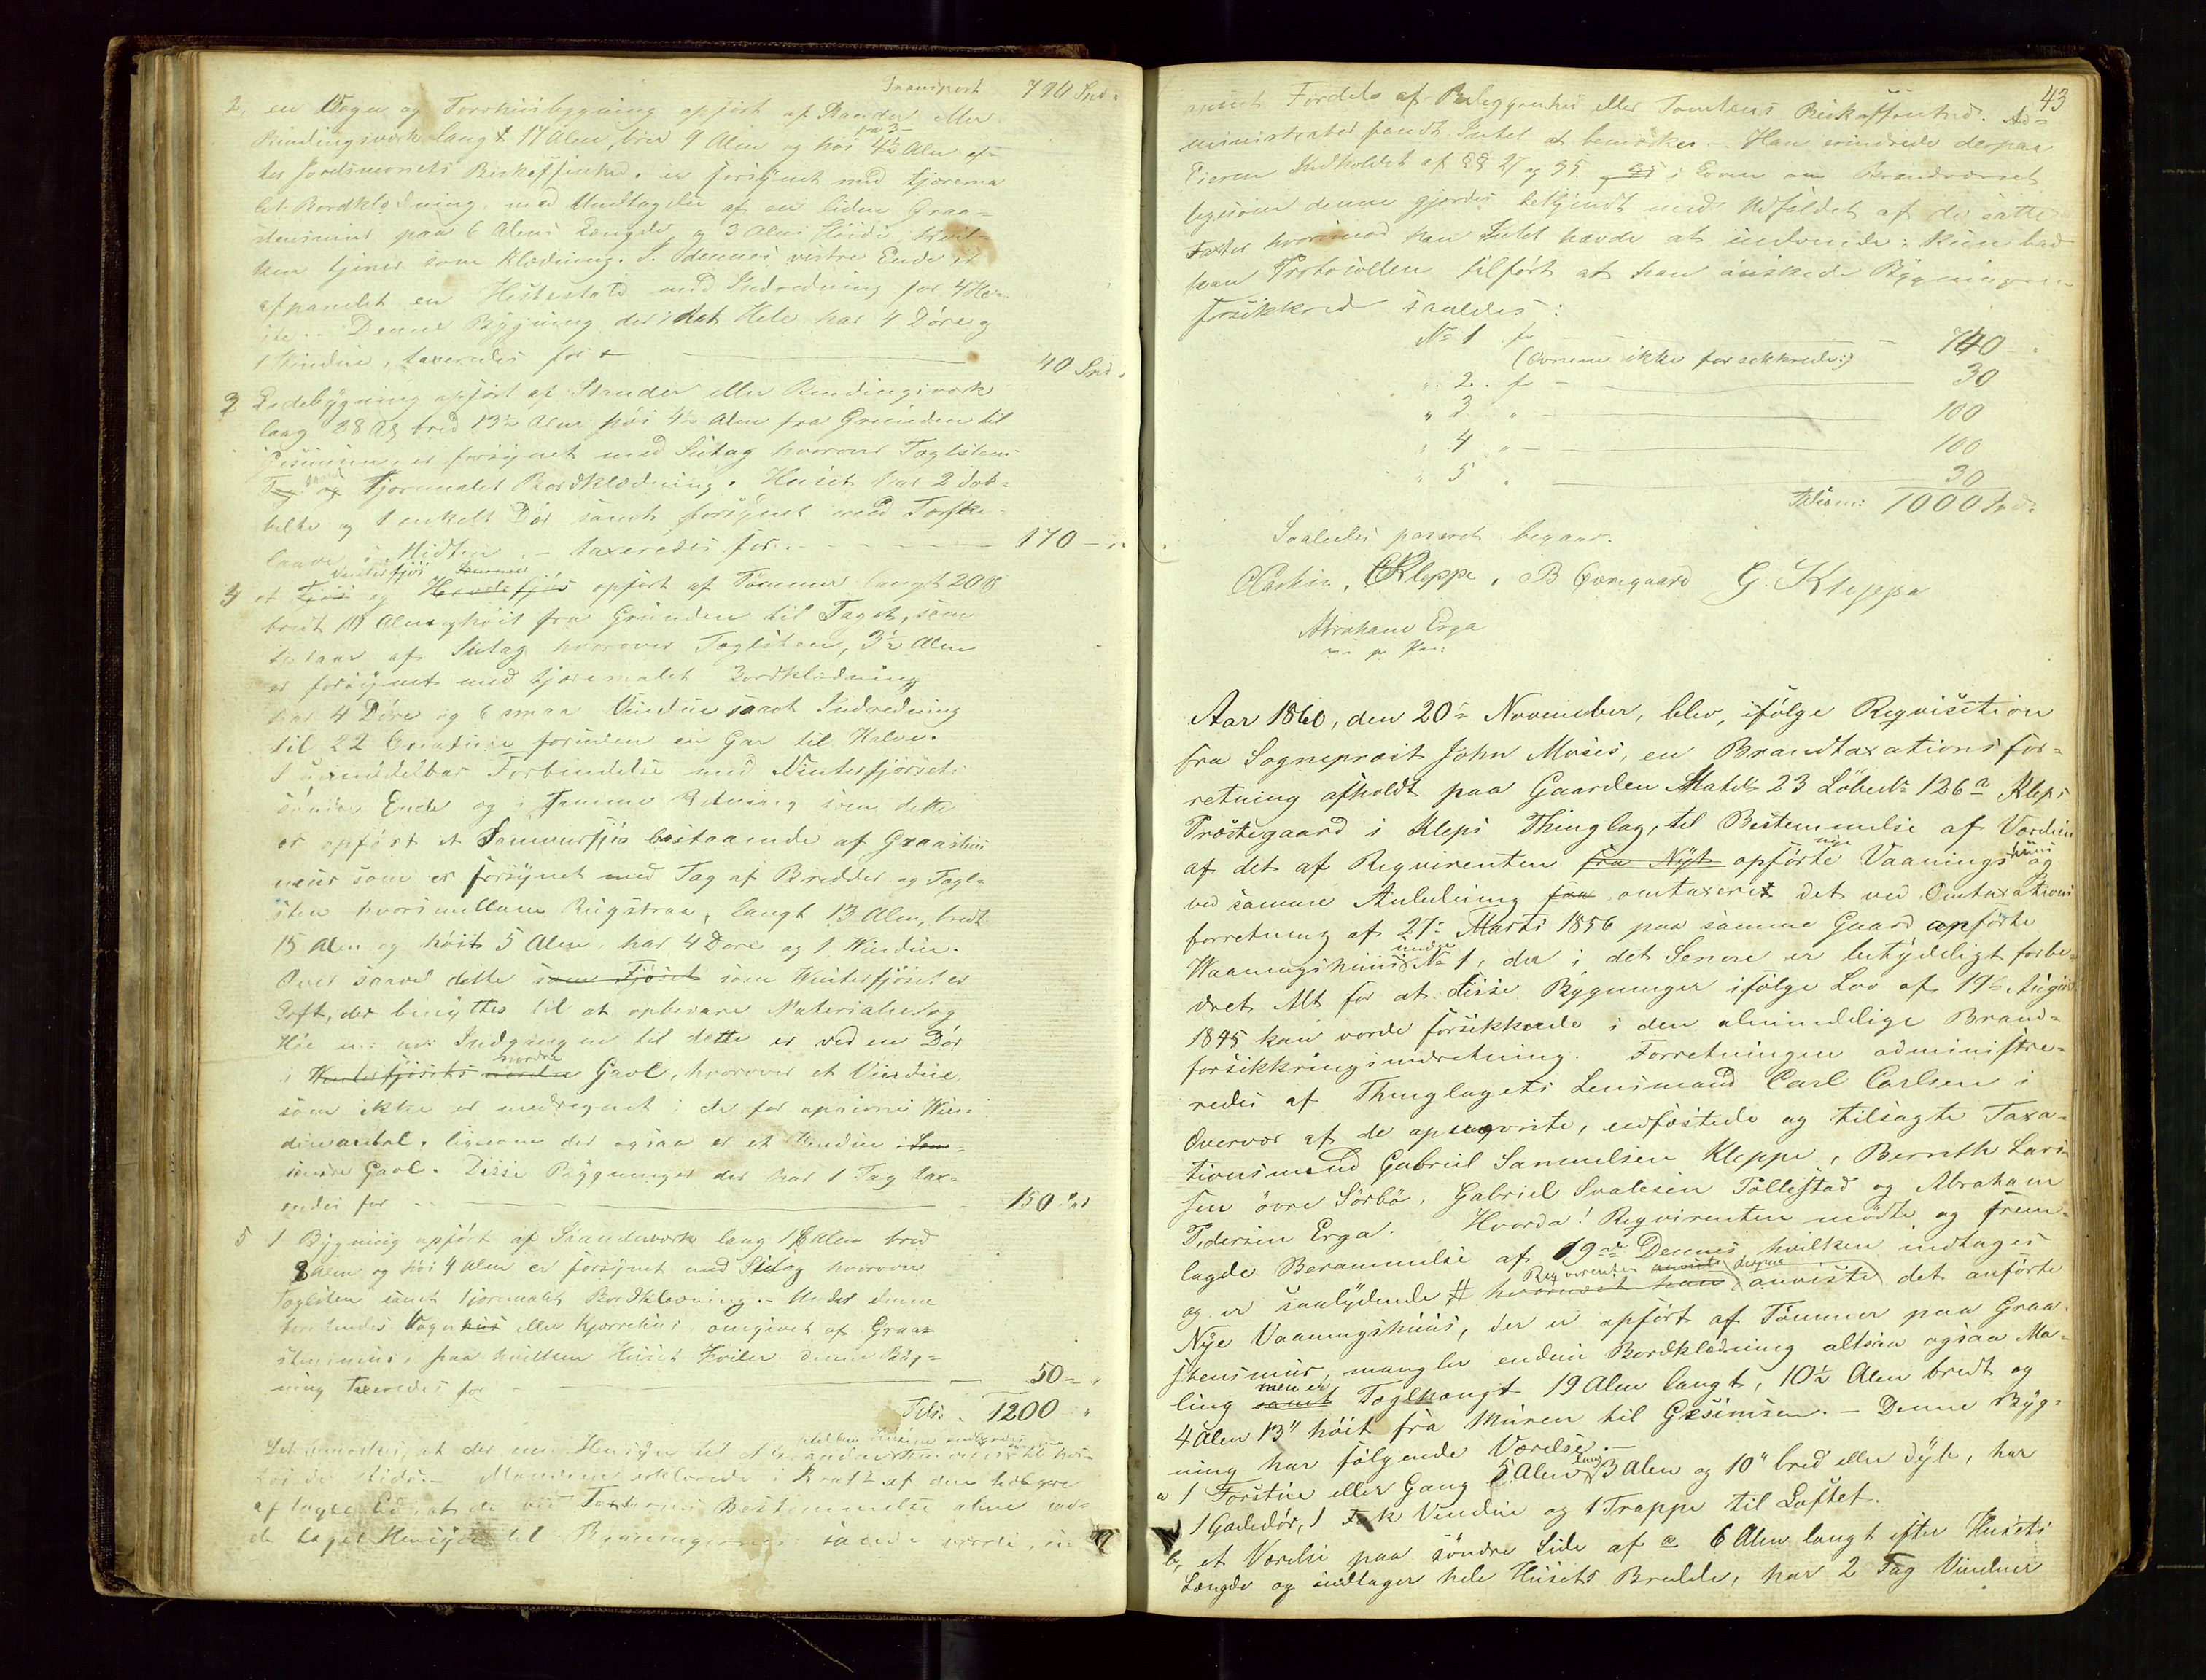 Transport 790 Spd:
2, en Vogn og Torvhuusbygning opført af Stander eller
Bindingsværk langt 17 Alen, bred 9 Alen og høi 4½ Alen ef-
ter Jordsmonets Beskaffenhed. er forsynet med tjærema
let Bordklædning, med Undtagelse af en liden Graa-
steensmur paa 6 Alens Længde og 3 Alens Høide hvil-
ken tjener som Klædning. I dennes vestre Ende er
afpanelet en Hestestald med Indredning for 4 He-
ste. Denne Bygning der i det Hele har 4 Døre og
1 Vindue, taxeredes for 40 Spd.
3 Ladebygning opført af Stander eller Bindingsværk
lang 28 Al bred 13½ Alen høi 4½ Alen fra Grunden til
Gesimsen, er forsynet med Sutag hvorover Taglsteen
Tag og tjæremalet Bordklædning. Huset har 2 dob-
belte og 1 enkelt Dør samt forsynet med Torske-
laave i Midten. - taxeredes for. 170 -
Vinterfjøs Sommer
4 et Fjøs og Hovedfjøs opført af Tømmer langt 20 Al
bredt 10 Alen høit fra Grunden til Taget, som
bestaar af Sutag hvorover Taglsteen, 3½ Alen
er forsynet med tjæremalet Bordklædning
har 4 Døre og 6 smaa Vinduer samt Indredning
til 22 Creaturer foruden en Gar til Kalve.
I umiddelbar Forbindelse med Vinterfjøsets
søndre Ende og i samme Retning som dette
er opført et Sommerfjøs bestaaende af Graasteens
muur som er forsynet med Tag af Bredder og Tagl-
steen hvorimellem Rugstraa, langt 13 Alen, bredt
15 Alen og høit 5 Alen, har 4 Døre og 1 Vindue.
Over saavel dette som Fjøset som Vinterfjøset er
Loft, der benyttes til at opbevare Materialier og
Høe m: m: Indgangen til dette er ved en Dør
i Vinterfjøsets nordre Gavl, hvorover et Vindue,
som ikke er medregnet i de før opgivne Vin-
dueantal, ligesom der ogsaa er et Vindue i Søn-
søndre Gavl. Disse Bygninger der har 1 Tag tax-
eredes for 150 Spd
5 1 Bygning opført af Standerværk lang 18 Alen bred
8 Alen og høi 4 Alen er forsynet med Sutag hvorover
Taglsteen samt tjæremalet Bordklædning. - Under denne
befindes Vognhus eller Kjærrehus omgivet af Graa
steensmur, paa hvilken Huset hviler. denne Byg-
ning taxeredes for 50 -
Tils: 1200 "
43
anseet Fordele af Beleggenhed eller Tomtens Beskaffenhed. Ad-
ministrator fandt Intet at bemærke. - Han erindrede derpaa
Eieren Indholdet af §§ 27 og 35 i Loven om Brandvæsenet
ligesom denne gjordes bekjendt med Udfaldet af de satte
Taxter hvorimod han Intet havde at indvende; kun bad
han Protocollen tilført at han ønskede Bygningerne
forsikkred saaledes:
No 1 for 740
(Ovnene ikke forsikkrede:)
" 2. f 30
" 3 " 100
" 4 " 100
" 5 " 30
tilsam: 1000 Spd.
Saaledes passeret begaar.
CCarlsen, C Kleppe, B Goregaard G. Kleppa
Abraham Erga
m: p: Pen:
Aar 1860, den 20de November, blev, ifølge Reqvisition
fra Sognepræst John Moses, en Brandtaxationsfor-
retning afholdt paa Gaarden Matr: 23 Løbe No 126a Kleps
Præstegaard i Kleps Thinglag, til Bestemmelse af Værdien
af det af Reqvirenten fra Nyt opførte nye Vaaningshuus og
ved samme Anledning faa omtaxeret det ved Omtaxations
forretning af 27de Marts 1856 paa samme Gaard anførte
Vaaningshuus under No 1, der i det Senere er betydeligt forbe-
dret Alt for at disse Bygninger ifølge Lov af 19de August
1845 kan vorde forsikkrede i den almindelige Brand-
forsikkringsindretning. Forretningen administre-
redes af Thinglagets Lensmand Carl Carlsen i
Overvær af de opnævnte, edfæstede og tilsagte Taxa-
tionsmænd Gabriel Samuelsen Kleppe, Bernth Lars
sen øvre Sørbø, Gabriel Svalesen Tøllestad og Abraham
Pedersen Erga. Hvorda! Reqvirenten mødte og frem-
lagde Berammelse af 19de Dennes hvilken indtages
og er saalydende # hvornæst han Reqvirenten anviste derpaa anviste det anførte
Nye Vaaningshuus, der er opført af Tømmer paa Graa-
steensmur, mangler endnu Bordklædning altsaa ogsaa Ma-
ling samt men er Taglhængt 19 Alen langt, 10½ Alen bredt og
4 Alen 13" høit fra Muren til Gesimsen. - Denne Byg-
ning har følgende Værelser. -
a 1 Forstue eller Gang 5 Alen lang 3 Alen og 10" bred eller dyb, har
1 Gadedør, 1 Fak Vindue og 1 Trappe til Loftet.
b, et Værelse paa søndre Side af a 6 Alen langt efter Husets
Længde og indtager hele Husets Bredde, har 2 Fag Vinduer